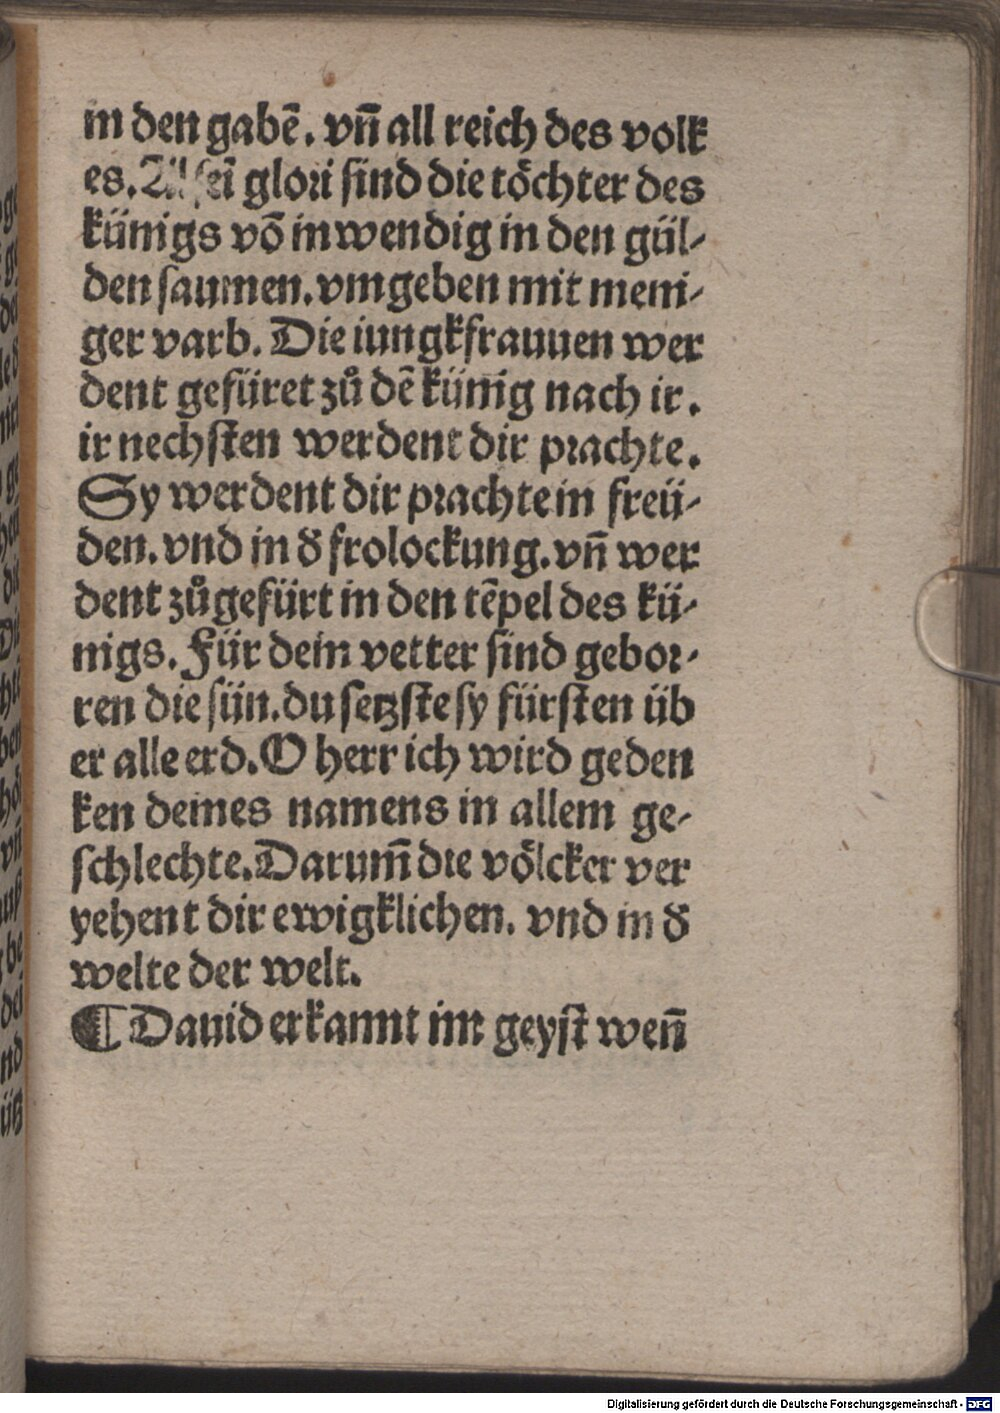 in den gabē. vn̄ all reich des volk
es. All sei glori sind die töchter des
künigs vō inwendig in den gül⸗
den saumen. vmgeben mit meni⸗
ger varb. Die iungkfrauuen wer
dent gefüret zů dē künig nach ir.
ir nechsten werdent dir prachte.
Sy werdent dir prachte in freü⸗
den. vnd in d̕ frolockung. vn̄ wer
dent zůgefürt in den tēpel des kü⸗
nigs. Für dein vetter sind gebor⸗
ren die sün. du setzste sy fürsten üb
er alle erd. O herr ich wird geden
ken deines namens in allem ge⸗
schlechte. Darum̄ die völcker ver
yehent dir ewigklichen. vnd in d̕
welte der welt.
¶ Dauid erkannt im geyst wen̄
Digitalisierung gefördert durch die Deutsche Forschungsgemeinschaft - DFG